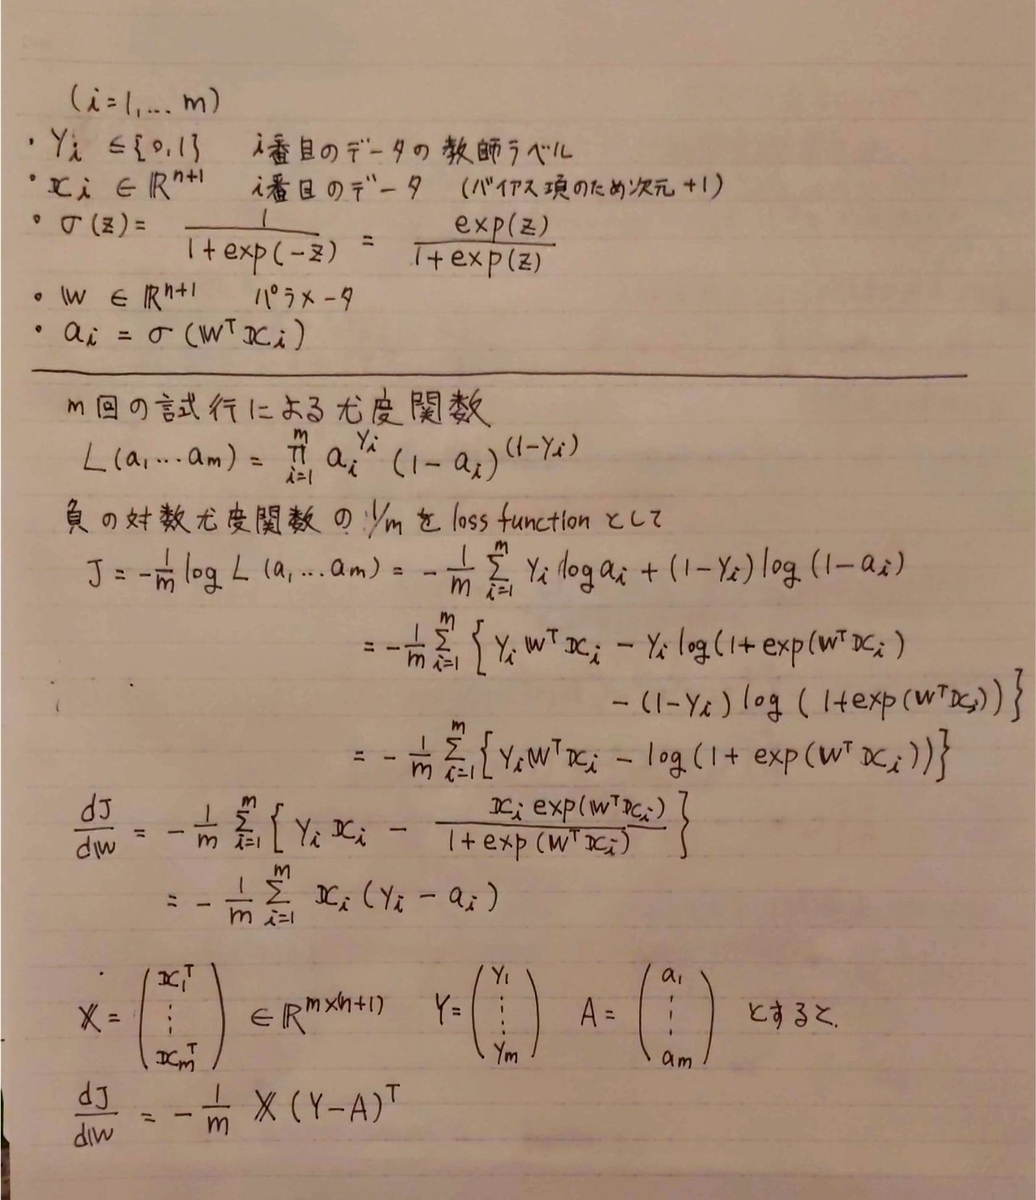 (i=1,... m)
・Yi ∈{0,1} i番目のデータの教師ラベル
・xi ∈ ℝ^{n+1} i番目のデータ (バイアス項のため次元+1)
・σ(z)= 1/(1+exp(-z)) = exp(z)/(1+exp(z))
・w ∈ ℝ^{n+1} パラメータ
・ai = σ(w^T xi)
m回の試行による尤度関数
L(a1...am) = ∏_{i=1}^{m} ai^{Yi} (1-ai)^{(1-Yi)}
負の対数尤度関数の 1/m を loss function として
J = -1/m log L (a1...am) = -1/m Σ_{i=1}^{m} Yi log ai + (1-Yi) log (1-ai)
= -1/m Σ_{i=1}^{m} { Yi w^T xi - Yi log(1+exp(w^T xi)
- (1-Yi) log ( 1+exp(w^T xi))}
= -1/m Σ_{i=1}^{m} {Yi w^T xi - log(1+ exp(w^T xi))}
dJ/dw = -1/m Σ_{i=1}^{m} { Yi xi - xi exp(w^T xi)/(1+exp(w^T xi)) }
= -1/m Σ_{i=1}^{m} xi (Yi - ai)
X = (x1^T ⋮ xm^T) ∈ ℝ^{m×(n+1)} Y = (Y1 ⋮ Ym) A = (a1 ⋮ am) とすると、
dJ/dw = -1/m X (Y-A)^T